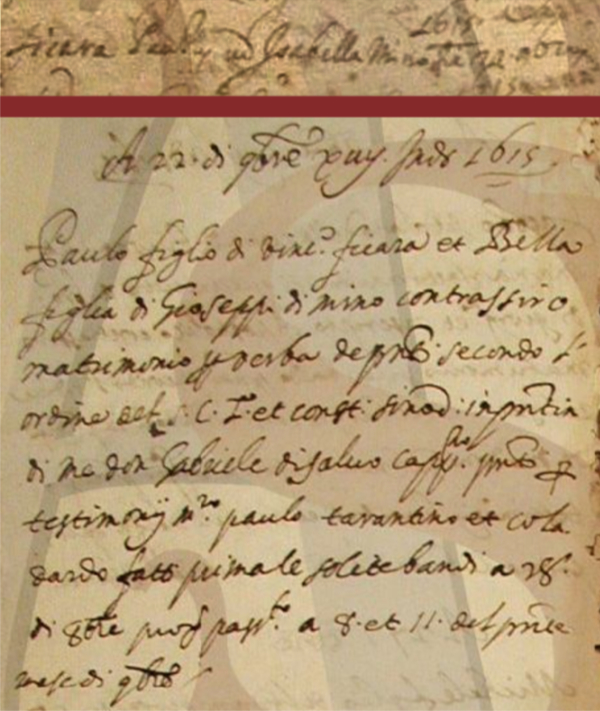 1615
ficara Paul. cu Isabella Mino
A 22 di 9bre xiiij. Ind. 1615.
Paulo figlio di vinc.o ficara et Bella
figlia di Gioseppi di mino contrassiro
matrimonio p verba de pnti secondo l'
ordine del s. C. T. et const. sinod. in pntia
di me don Gabriele disalvo capp.no pnti p
testimonij m.ro paulo tarantino et cola
dardo fatti prima le solite bandi a 28.
di 8bre pross.o pass.to a 8. et 11. del pnte
mese di 9bre